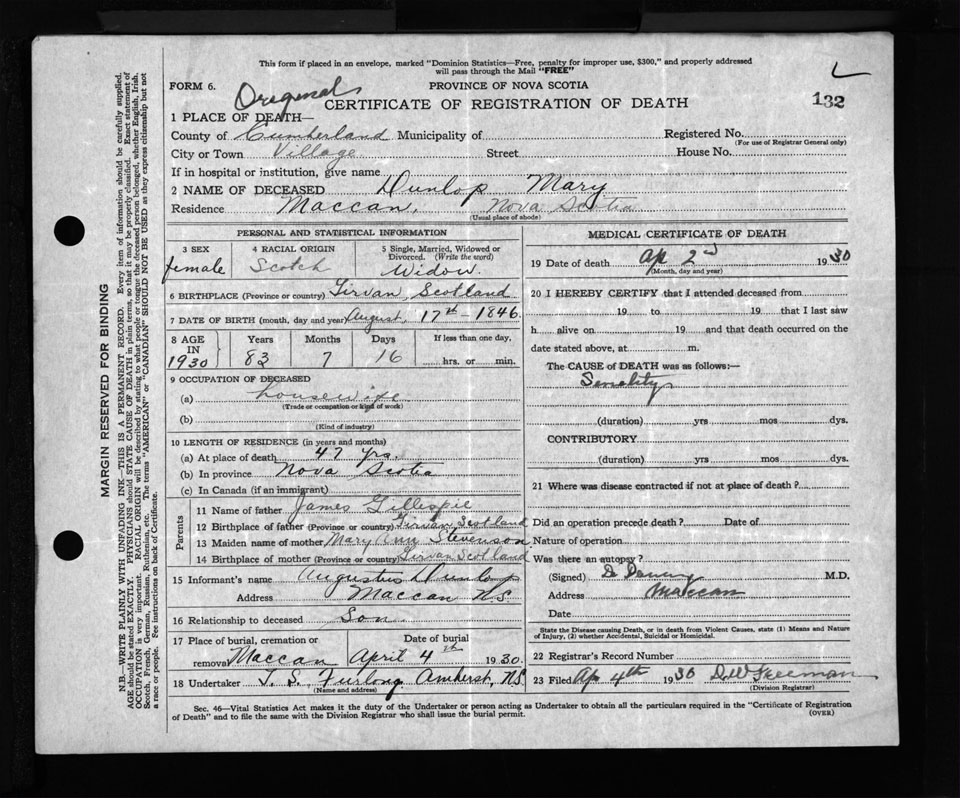 This form if placed in an envelope, marked "Dominion Statistics—Free, penalty for improper use, $300," and properly addressed
will pass through the Mail "FREE"
FORM 6. PROVINCE OF NOVA SCOTIA
Original
CERTIFICATE OF REGISTRATION OF DEATH 132
1 PLACE OF DEATH—
County of Cumberland Municipality of Registered No.
(For use of Registrar General only)
City or Town Village Street House No.
If in hospital or institution, give name
2 NAME OF DECEASED Dunlop Mary
Residence Maccan, Nova Scotia
(Usual place of abode)
PERSONAL AND STATISTICAL INFORMATION
3 SEX 4 RACIAL ORIGIN 5 Single, Married, Widowed or
Divorced. (Write the word)
female Scotch Widow.
6 BIRTHPLACE (Province or country) Girvan, Scotland
7 DATE OF BIRTH (month, day and year) August 17th - 1846.
8 AGE Years Months Days If less than one day,
IN
1930 83 7 16 hrs. or min.
9 OCCUPATION OF DECEASED
(a) housewife
(Trade or occupation or kind of work)
(b)
(Kind of industry)
10 LENGTH OF RESIDENCE (in years and months)
(a) At place of death 47 yrs.
(b) In province Nova Scotia
(c) In Canada (if an immigrant)
Parents
11 Name of father James Gillespie
12 Birthplace of father (Province or country) Girvan Scotland
13 Maiden name of mother Mary Ann Stevenson
14 Birthplace of mother (Province or country) Girvan Scotland
15 Informant's name Augustus Dunlop
Address Maccan N.S.
16 Relationship to deceased Son
17 Place of burial, cremation or Date of burial
removal Maccan April 4th 1930.
18 Undertaker T. S. Furlong Amherst, N.S.
(Name and address)
MEDICAL CERTIFICATE OF DEATH
19 Date of death Ap 2nd 1930
(Month, day and year)
20 I HEREBY CERTIFY that I attended deceased from
19 to 19 that I last saw
h alive on 19 and that death occurred on the
date stated above, at m.
The CAUSE of DEATH was as follows:—
Senility
(duration) yrs mos dys.
CONTRIBUTORY
(duration) yrs mos dys.
21 Where was disease contracted if not at place of death?
Did an operation precede death? Date of
Nature of operation
Was there an autopsy?
(Signed) M.D.
Address Maccan
Date
State the Disease causing Death, or in death from Violent Causes, state (1) Means and Nature
of Injury, (2) whether Accidental, Suicidal or Homicidal.
22 Registrar's Record Number
23 Filed Ap 4th 1930 D.W. Freeman
(Division Registrar)
Sec. 46—Vital Statistics Act makes it the duty of the Undertaker or person acting as Undertaker to obtain all the particulars required in the "Certificate of Registration
of Death" and to file the same with the Division Registrar who shall issue the burial permit. (OVER)
MARGIN RESERVED FOR BINDING
N.B.—WRITE PLAINLY WITH UNFADING INK—THIS IS A PERMANENT RECORD. Every item of information should be carefully supplied.
AGE should be stated EXACTLY. PHYSICIANS should STATE CAUSE OF DEATH in plain terms, so that it may be properly classified. Exact statement of
OCCUPATION is very important. RACIAL ORIGIN will be described by stating to what people or tongue the deceased person belonged, whether English, Irish,
Scotch, French, German, Russian, Ruthenian, etc. The terms "AMERICAN" or "CANADIAN" SHOULD NOT BE USED as they express citizenship but not
a race or people. See instructions on back of Certificate.